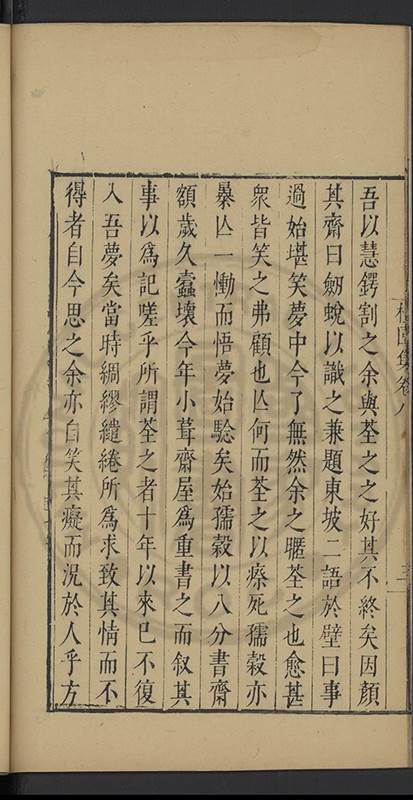 吾以慧鍔割之余與荃之之好其不終矣因顏
其齋曰劒蛻以識之兼題東坡二語於壁曰事
過始堪笑夢中今了無然余之暱荃之也愈甚
衆皆笑之弗顧也亾何而荃之以瘵死孺穀亦
暴亾一慟而悟夢始騐矣始孺穀以八分書齋
額歲久蠧壞今年小葺齋屋爲重書之而叙其
事以爲記嗟乎所謂荃之者十年以來已不復
入吾夢矣當時綢繆繾綣所爲求致其情而不
得者自今思之余亦自笑其癡而況於人乎方